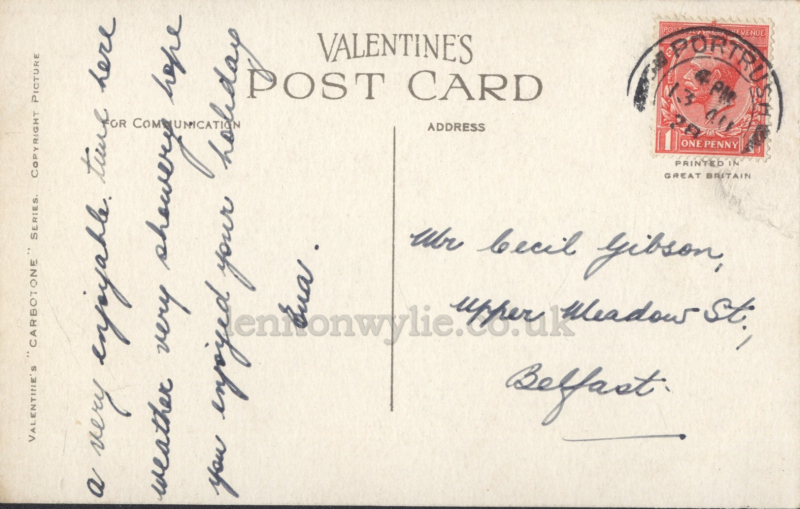 VALENTINE'S
POST CARD
FOR COMMUNICATION
ADDRESS
PORTRUSH
4 PM
13 AU
28
1 ONE PENNY
PRINTED IN
GREAT BRITAIN
VALENTINE'S "CARBOTONE" SERIES. COPYRIGHT PICTURE
a very enjoyable time here
weather very showery hope
you enjoyed your holiday
Ena.
Mr Cecil Gibson,
Upper Meadow St.,
Belfast.
lennonwylie.co.uk